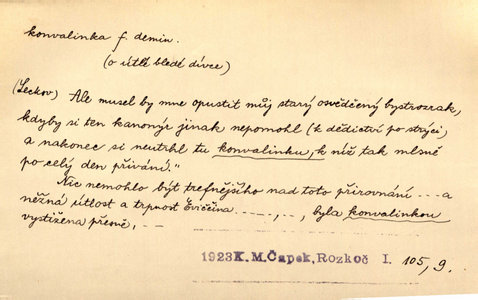 konvalinka f. demin.
(o útlé bledé dívce)
(Leckov) Ale musel by mne opustit můj starý osvědčený bystrozrak,
kdyby si ten kanonýr jinak nepomohl (k dědictví po strýci)
a nakonec si neutrhl tu konvalinku, k níž tak mlsně
po celý den přivání."
Nic nemohlo být trefnějšího nad toto přirovnání --- a
něžná útlost a trpnost Evičina ----, --, byla konvalinkou
vystižena přesně, --
1923 K. M. Čapek, Rozkoč I. 105, 9.